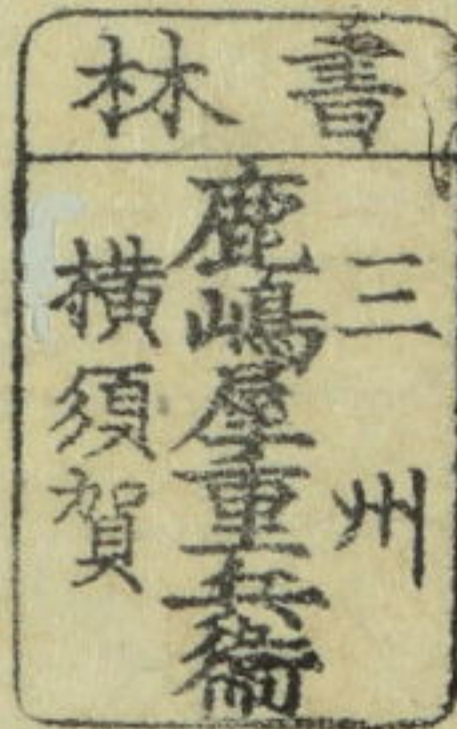 書林
三州
鹿嶋屋重兵衛
横須賀